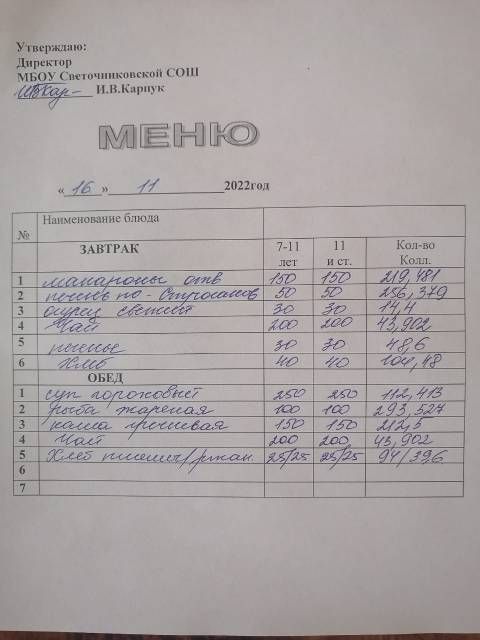 Утверждаю:
Директор
МБОУ Светочниковской СОШ
И.В.Карпук
МЕНЮ
«16» 11 2022год
№ Наименование блюда
ЗАВТРАК 7-11 лет 11 и ст. Кол-во Колл.
1 макароны отв 150 150 219,481
2 печень по-строганов 50 50 256,379
3 огурец свежий 30 30 14,4
4 Чай 200 200 43,902
5 30 30 48,6
6 Хлеб 40 40 104,48
ОБЕД
1 суп гороховый 250 250 112,413
2 рыба жареная 100 100 293,527
3 каша гречневая 150 150 212,5
4 Чай 200 200 43,902
5 Хлеб пшенич/ржан 25/25 25/25 94/39,6
6
7